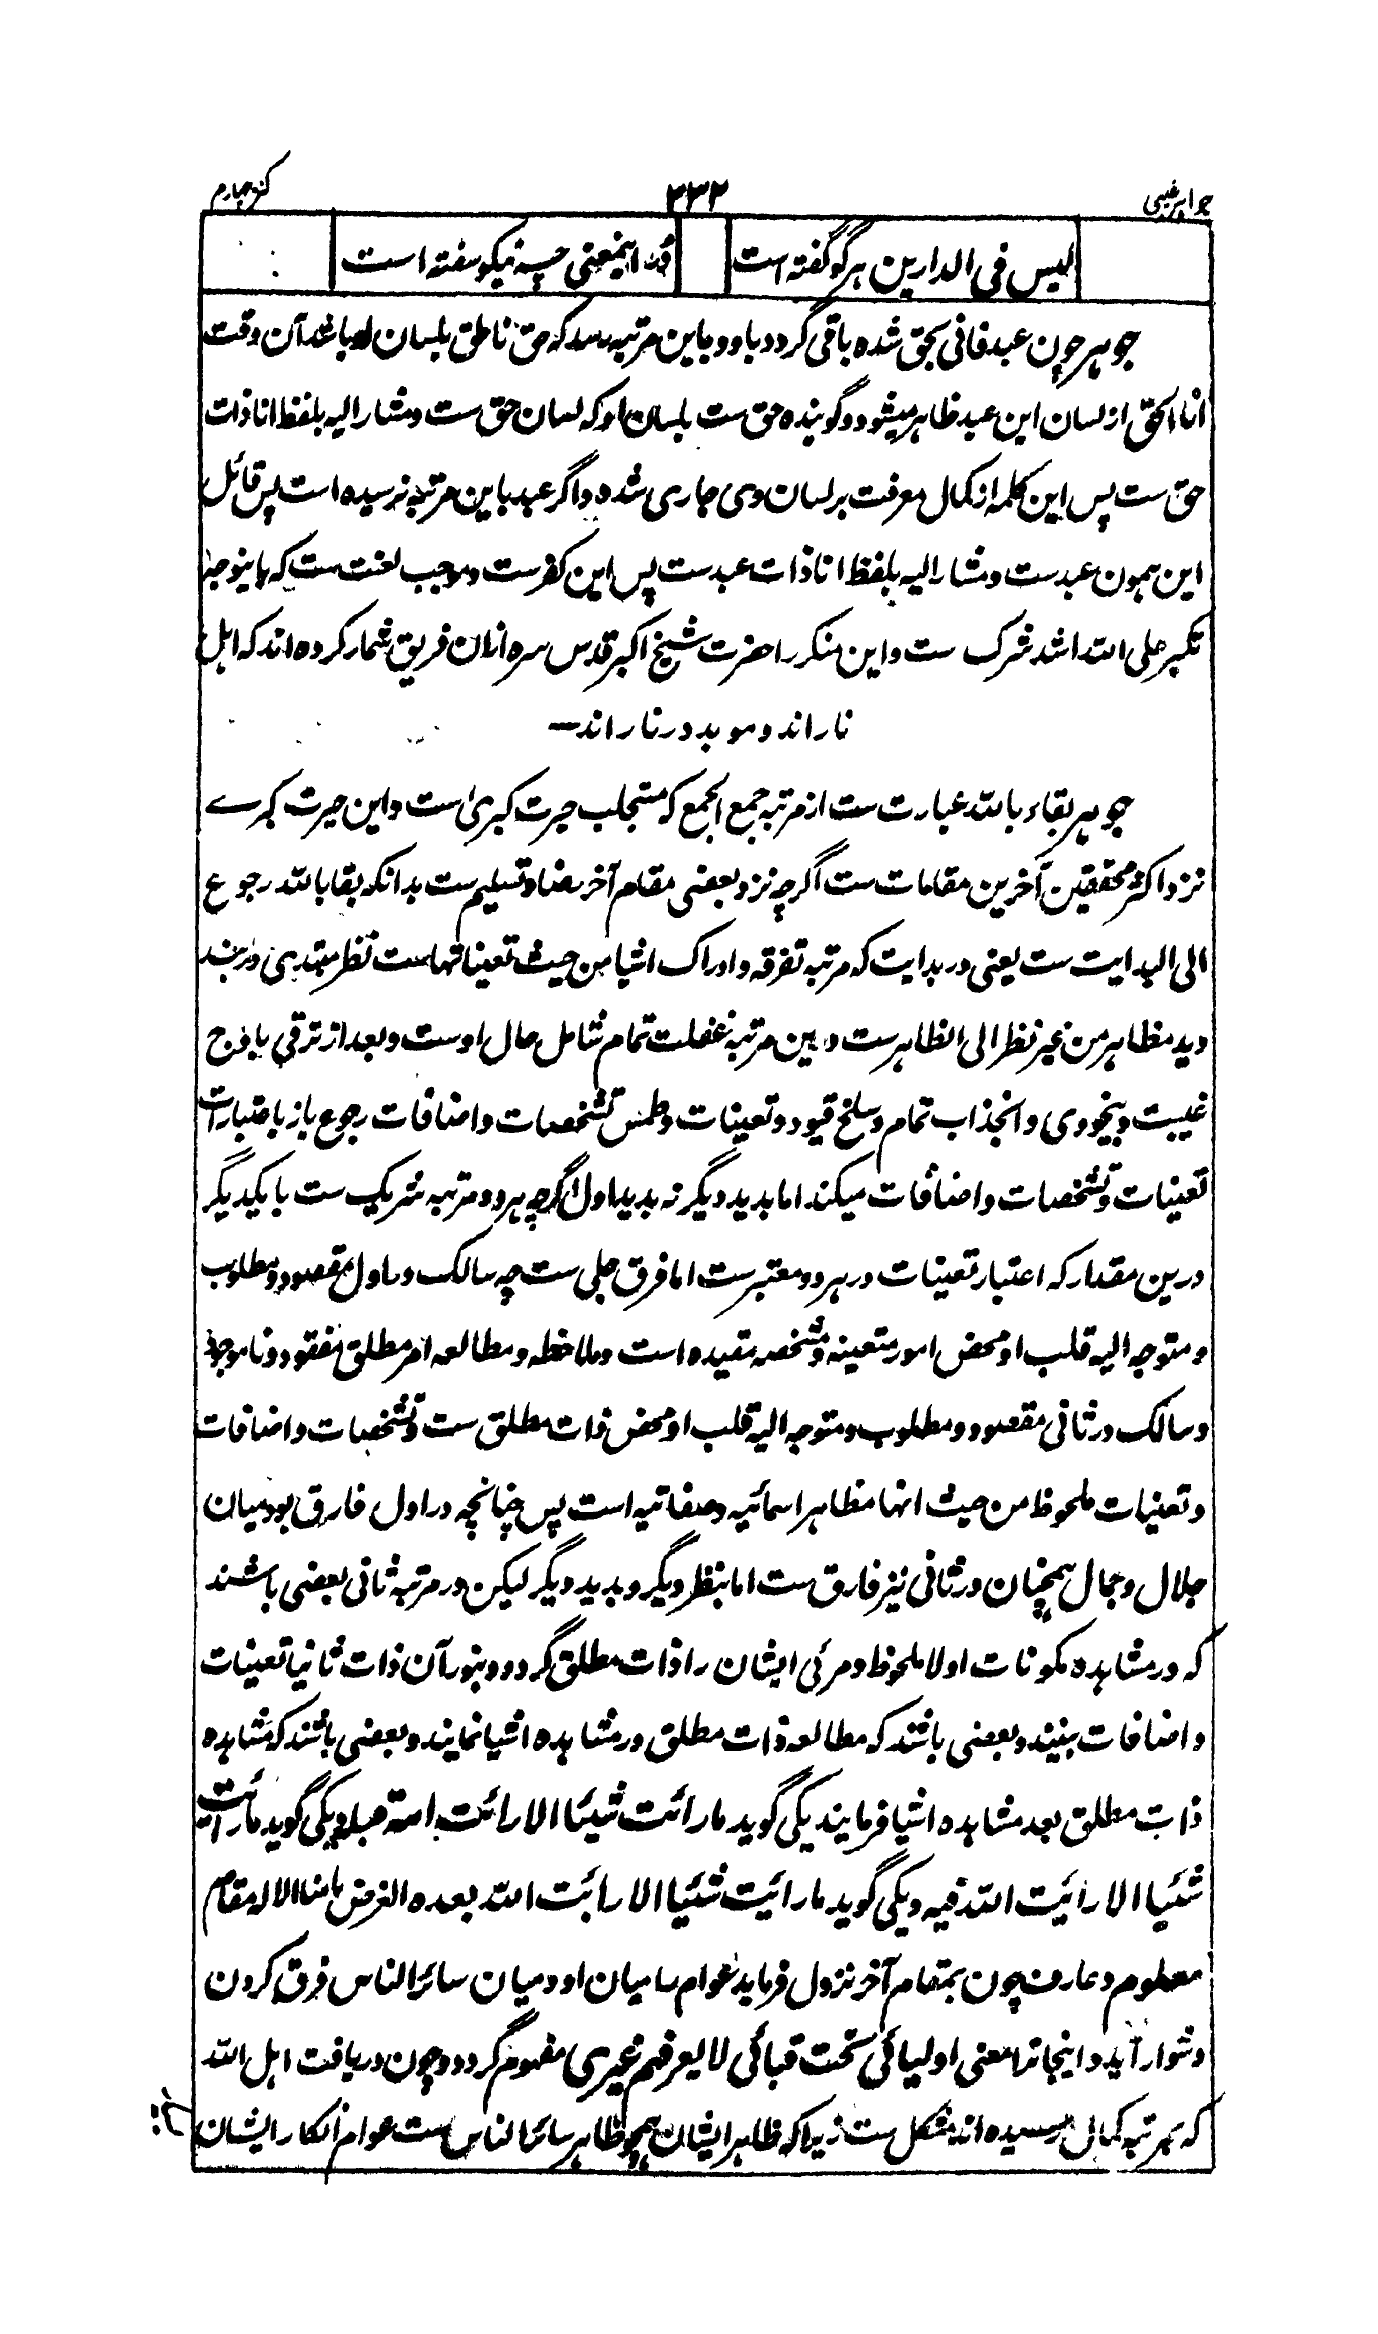 جواہر غیبی ۳۳۲ کنز چہارم
لیس فی الدارین ہر گو گفتہ است در اینمعنی چہ نیکو سفتہ است
جوہر چون عبد فانی بحق شدہ باقی گردد باو و باین مرتبہ رسد کہ حق ناطق بلسان او باشد آن وقت
انا الحق از لسان این عبد ظاہر میشود و گویندہ حق ست بلسان او کہ لسان حق ست و مشار الیہ بلفظ انا ذات
حق ست پس این کلمہ از کمال معرفت بر لسان وی جاری شدہ و اگر عبد باین مرتبہ نرسیدہ است پس قائل
این ہمون عبدست و مشار الیہ بلفظ انا ذات عبدست پس این کفرست و موجب لعنت ست کہ باینوجہ
تکبر علی اللہ اشد شرک ست و این منکر را حضرت شیخ اکبر قدس سرہ ازان فریق شمار کردہ اند کہ اہل
نار اند و موبد در نار اند
جوہر بقاء باللہ عبارت ست از مرتبہ جمع الجمع کہ مستجلب حیرت کبریٰ است و این حیرت کبرے
نزد اکثر محققین آخرین مقامات ست اگرچہ نزد بعضی مقام آخر رضا و تسلیم ست بدانکہ بقا باللہ رجوع
الی البدایت ست یعنی در بدایت کہ مرتبہ تفرقہ و ادراک اشیا من حیث تعیناتہاست نظر مبتدی در بند
دید مظاہر من غیر نظر الی الظاہرست و این مرتبہ غفلت تمام شامل حال اوست و بعد از ترقی باوج
غیبت و بیخودی و انجذاب تمام و سلخ قیود و تعینات و طمس تشخصات و اضافات رجوع باز باعتبارات
تعینات و تشخصات و اضافات میکند اما بدید دیگر نہ بدید اول اگرچہ ہر دو مرتبہ شریک ست بایکدیگر
درین مقدار کہ اعتبار تعینات در ہر دو معتبرست اما فرق جلی ست چہ سالک در اول مقصود و مطلوب
و متوجہ الیہ قلب او محض امور متعینہ و مشخصہ مقیدہ است و ملاحظہ و مطالعہ امر مطلق مفقود و ناموجود
و سالک در ثانی مقصود و مطلوب و متوجہ الیہ قلب او محض ذات مطلق ست و تشخصات و اضافات
و تعینات ملحوظ من حیث انہا مظاہر اسمائیہ و صفاتیہ است پس چنانچہ در اول فارق بود میان
جلال و جمال ہمچنان در ثانی نیز فارق ست اما بنظر دیگر و بدید دیگر لیکن در مرتبہ ثانی بعضی باشند
کہ در مشاہدہ مکونات اولا ملحوظ و مرئی ایشان را ذات مطلق گردد و بنور آن ذات ثانیا تعینات
و اضافات بینند و بعضی باشند کہ مطالعہ ذات مطلق در مشاہدہ اشیا نمایند و بعضی باشند کہ مشاہدہ
ذات مطلق بعد مشاہدہ اشیا فرمایند یکی گوید ما رائت شیئا الا رائت اللہ قبلہ و یکی گوید ما رأیت
شئیا الا رائیت اللہ فیہ و یکی گوید ما رائیت شئیا الا رایت اللہ بعدہ الغرض ما منا الا لہ مقام
معلوم و عارف چون بمقام آخر نزول فرماید عوام را میان او و میان سائر الناس فرق کردن
دشوار آید و اینجا معنی اولیائی تحت قبائی لا یعرفہم غیری مفہوم گردد و چون دریافت اہل اللہ
کہ بمرتبہ کمال رسیدہ اند مشکل ست زیراکہ ظاہر ایشان ہمچو ظاہر سائر الناس ست عوام انکار ایشان